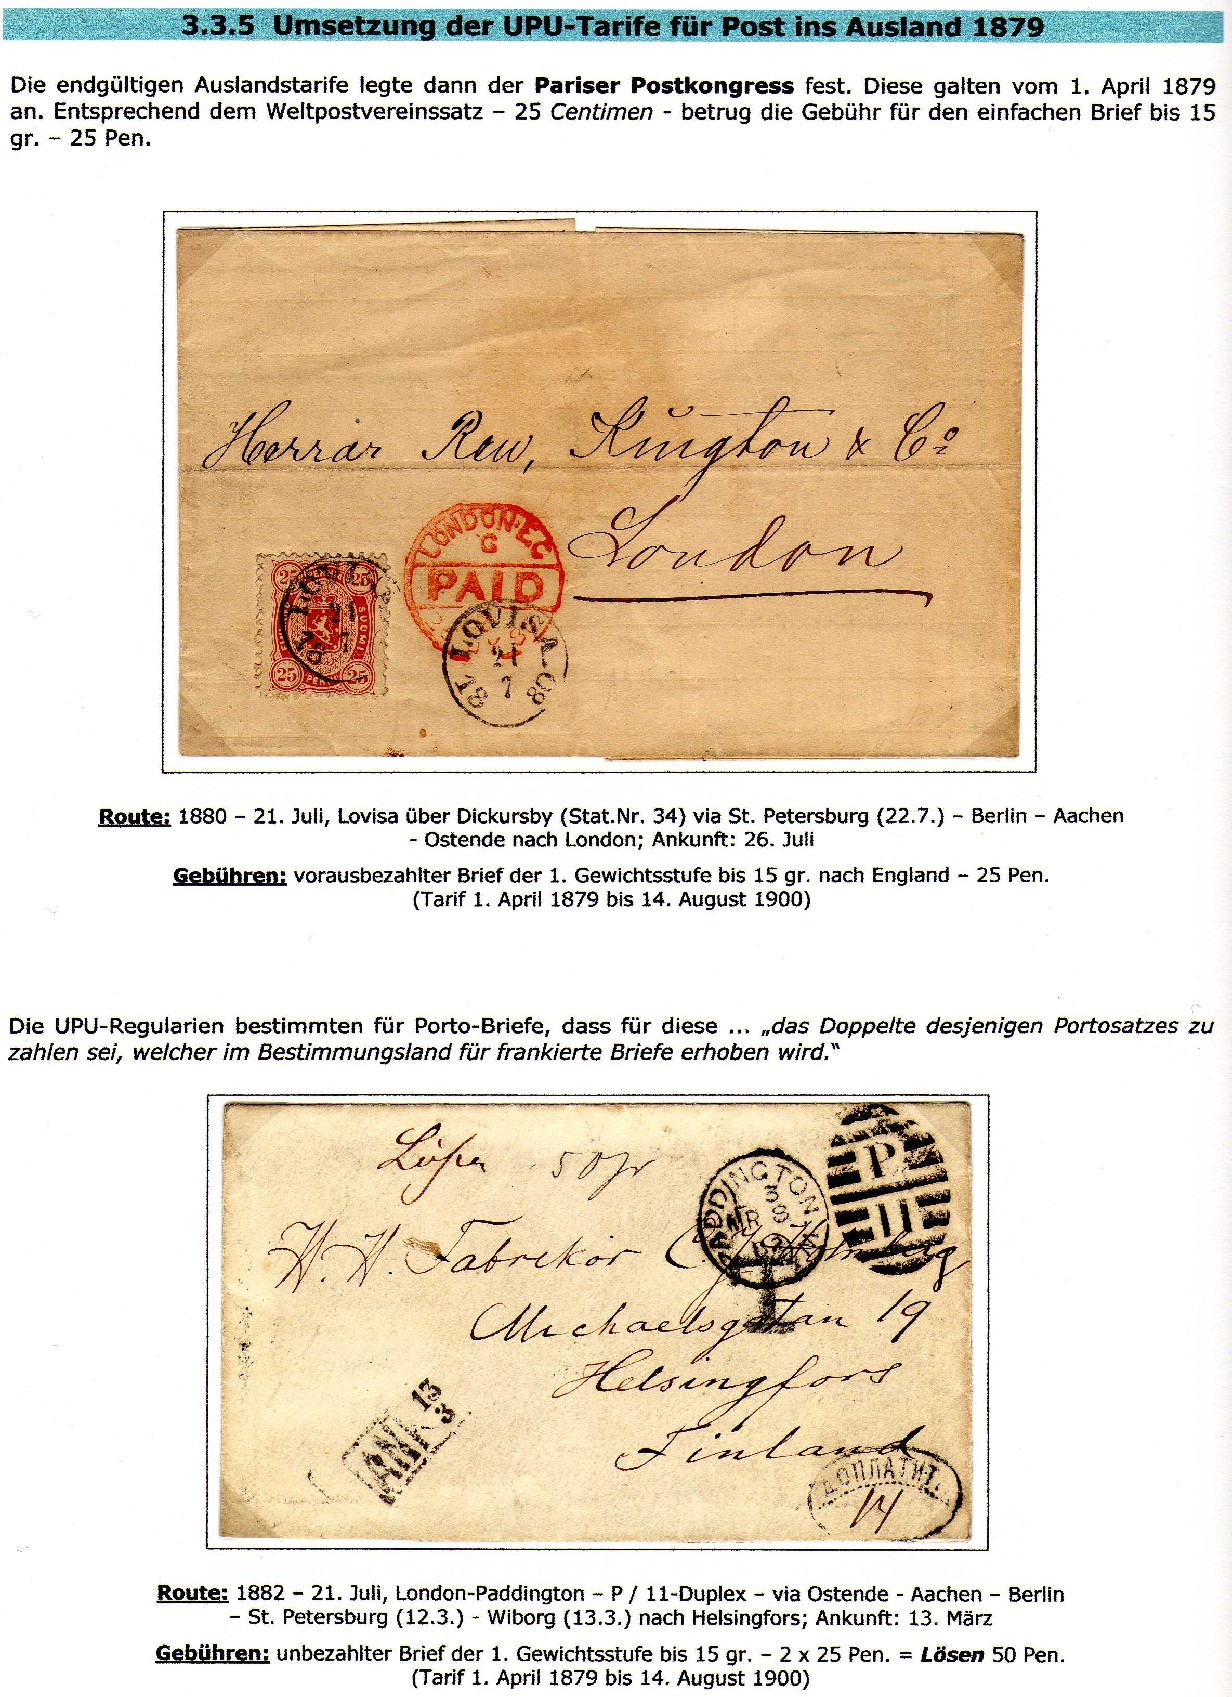 3.3.5 Umsetzung der UPU-Tarife für Post ins Ausland 1879
Die endgültigen Auslandstarife legte dann der Pariser Postkongress fest. Diese galten vom 1. April 1879
an. Entsprechend dem Weltpostvereinssatz – 25 Centimen - betrug die Gebühr für den einfachen Brief bis 15
gr. – 25 Pen.
Herrar Rew, Kington & Co
London
LONDON·E.C
C
PAID
LOVISA
21
7
18 80
25 25
SUOMI
25 PEN 25
Route: 1880 – 21. Juli, Lovisa über Dickursby (Stat.Nr. 34) via St. Petersburg (22.7.) – Berlin – Aachen
- Ostende nach London; Ankunft: 26. Juli
Gebühren: vorausbezahlter Brief der 1. Gewichtsstufe bis 15 gr. nach England – 25 Pen.
(Tarif 1. April 1879 bis 14. August 1900)
Die UPU-Regularien bestimmten für Porto-Briefe, dass für diese ... „das Doppelte desjenigen Portosatzes zu
zahlen sei, welcher im Bestimmungsland für frankierte Briefe erhoben wird."
Lösen 50
PADDINGTON
P
11
T
H. H. Fabrekör
Michaelsgatan 19
Helsingfors
Finland
ANK 13
3
ДОПЛАТИТЬ
14
Route: 1882 – 21. Juli, London-Paddington – P / 11-Duplex – via Ostende - Aachen – Berlin
– St. Petersburg (12.3.) - Wiborg (13.3.) nach Helsingfors; Ankunft: 13. März
Gebühren: unbezahlter Brief der 1. Gewichtsstufe bis 15 gr. – 2 x 25 Pen. = Lösen 50 Pen.
(Tarif 1. April 1879 bis 14. August 1900)